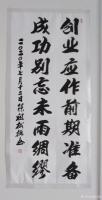 创业应作前期准备
成功别忘未雨绸缪
二〇二〇年七月十二日